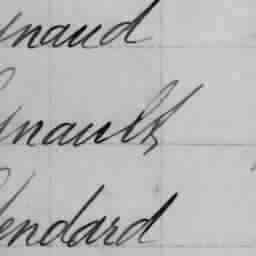 ynaud
ynault
endard